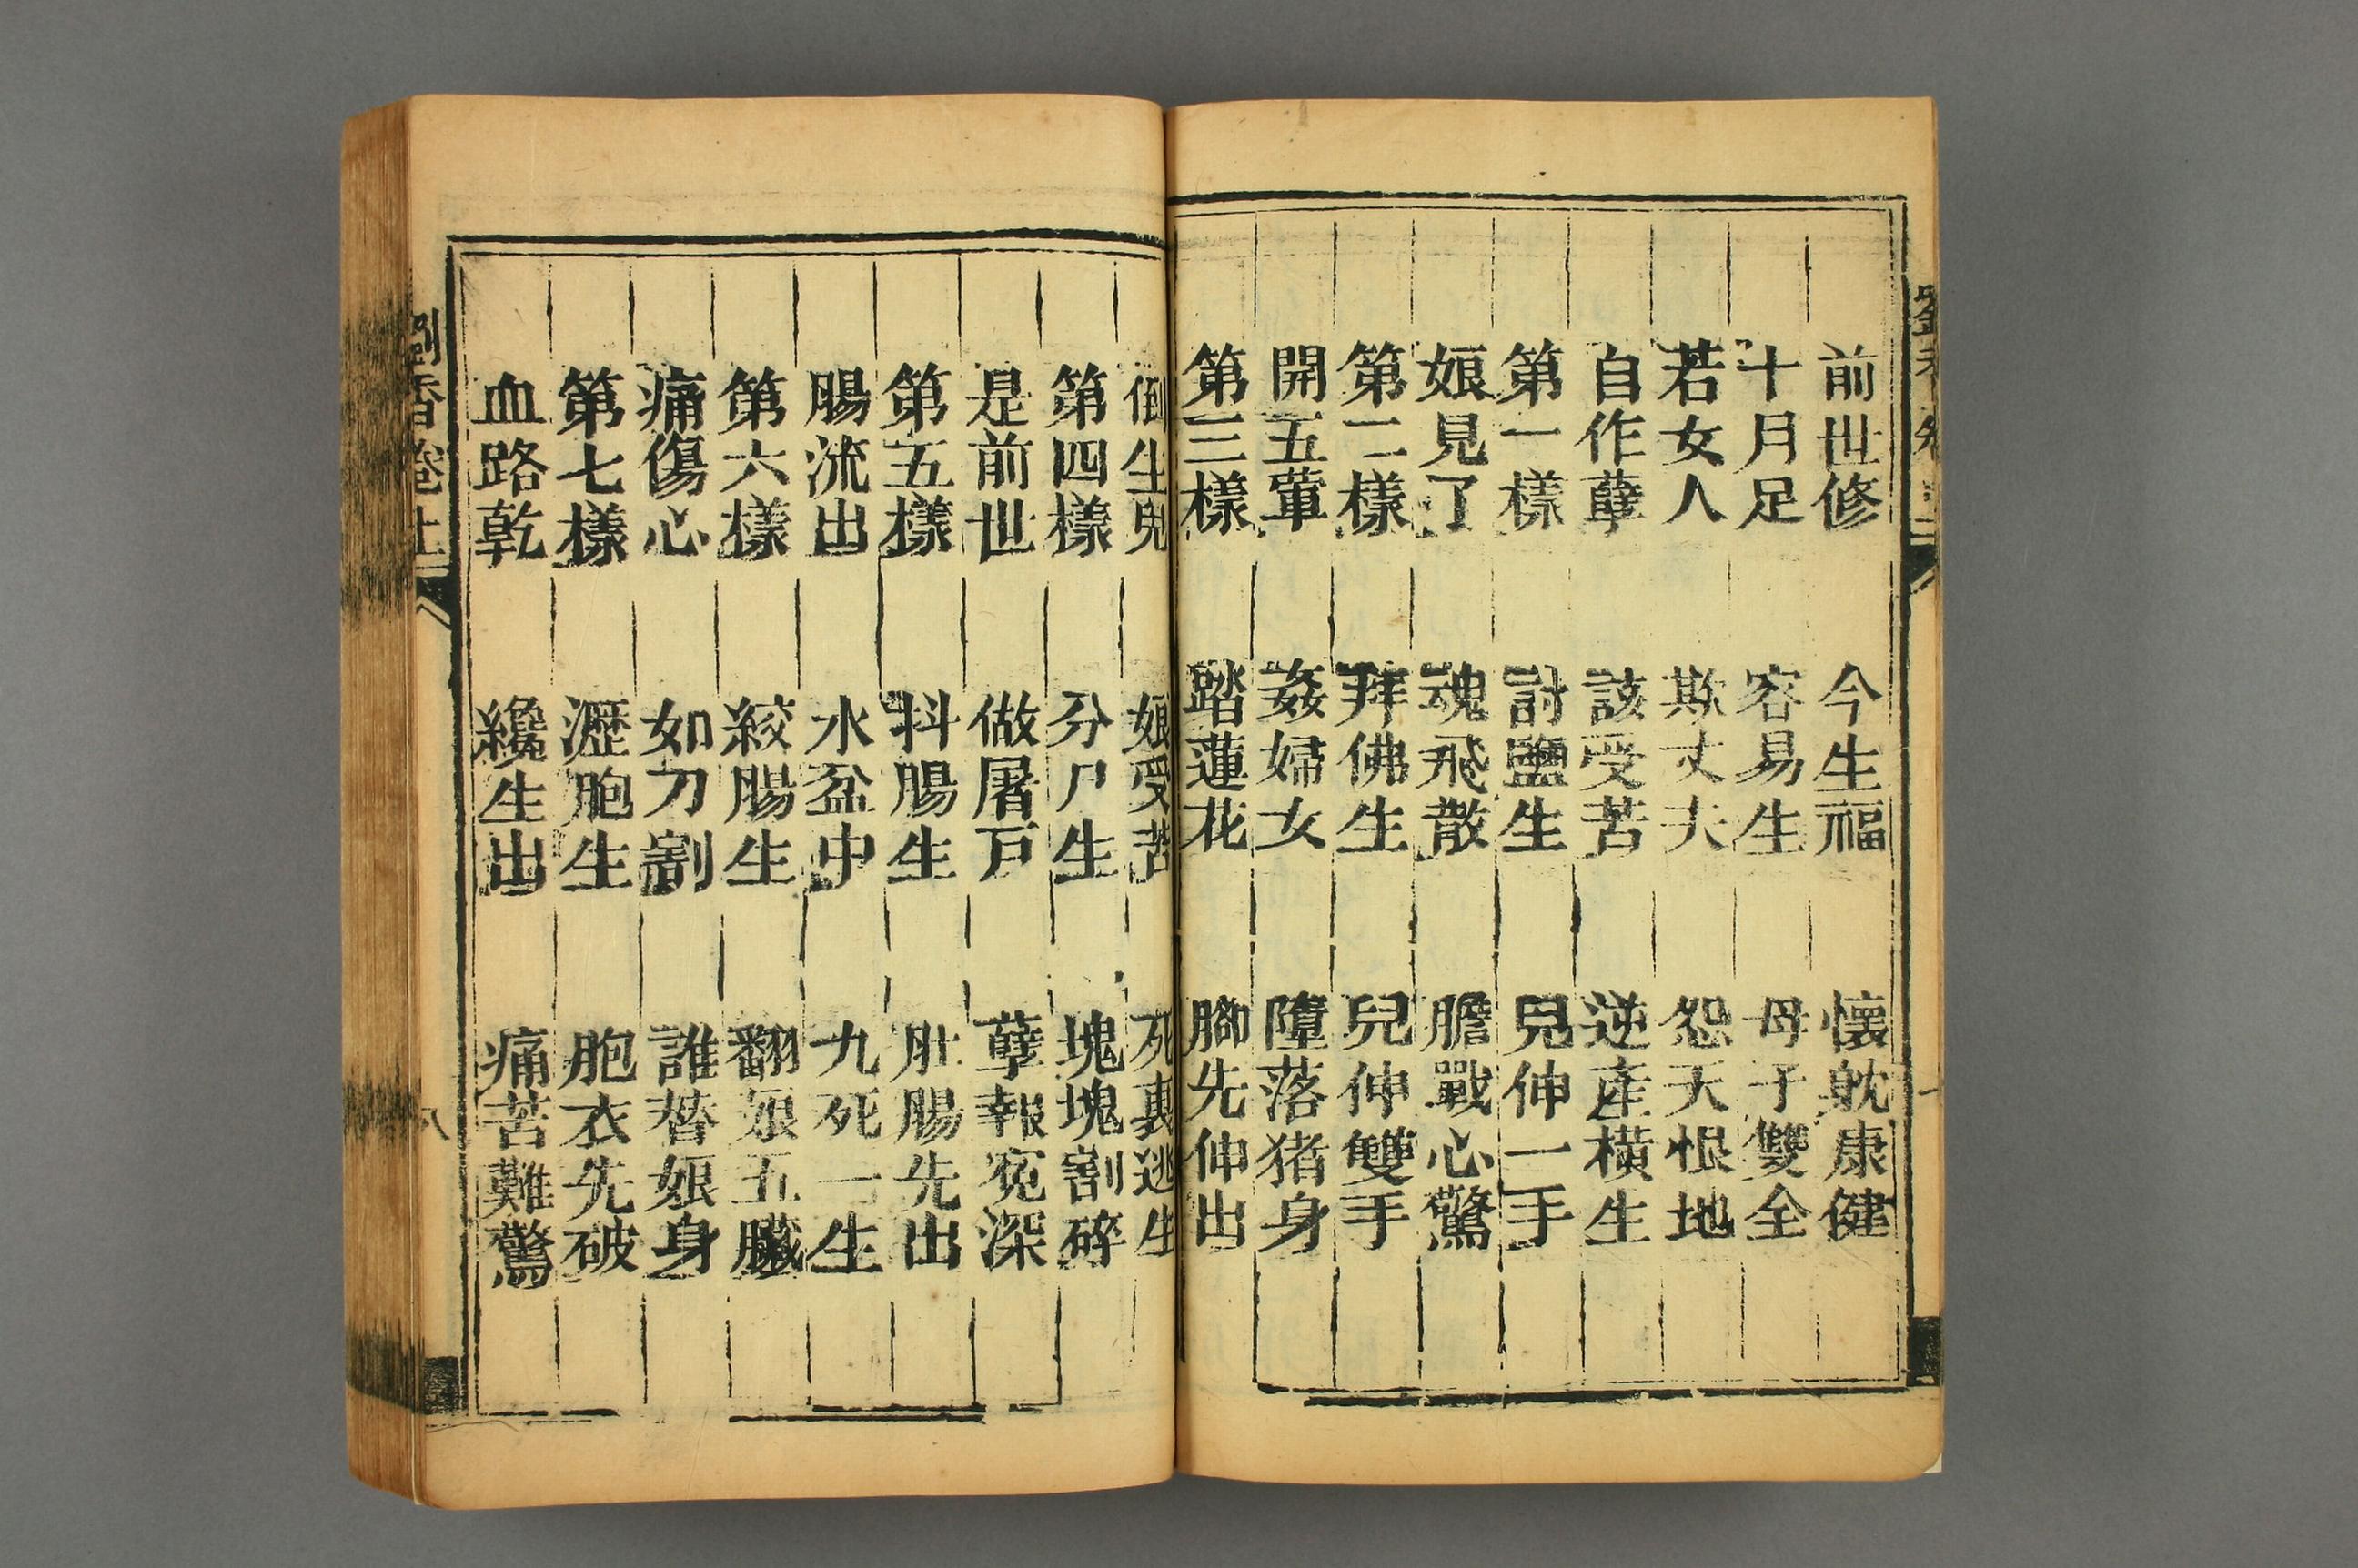 前世修 今生福 懷躭康健
十月足 容易生 母子雙全
若女人 欺丈夫 怨天恨地
自作孽 該受苦 逆產橫生
第一樣 討鹽生 兒伸一手
娘見了 魂飛散 膽戰心驚
第二樣 拜佛生 兒伸雙手
開五葷 姦婦女 墮落猪身
第三樣 踏蓮花 腳先伸出
倒生兒 娘受苦 死裏逃生
第四樣 分尸生 塊塊割碎
是前世 做屠戶 孽報寃深
第五樣 抖腸生 肚腸先出
腸流出 水盆中 九死一生
第六樣 絞腸生 翻娘五臟
痛傷心 如刀割 誰替娘身
第七樣 瀝胞生 胞衣先破
血路乾 纔生出 痛苦難驚
劉香卷上
八